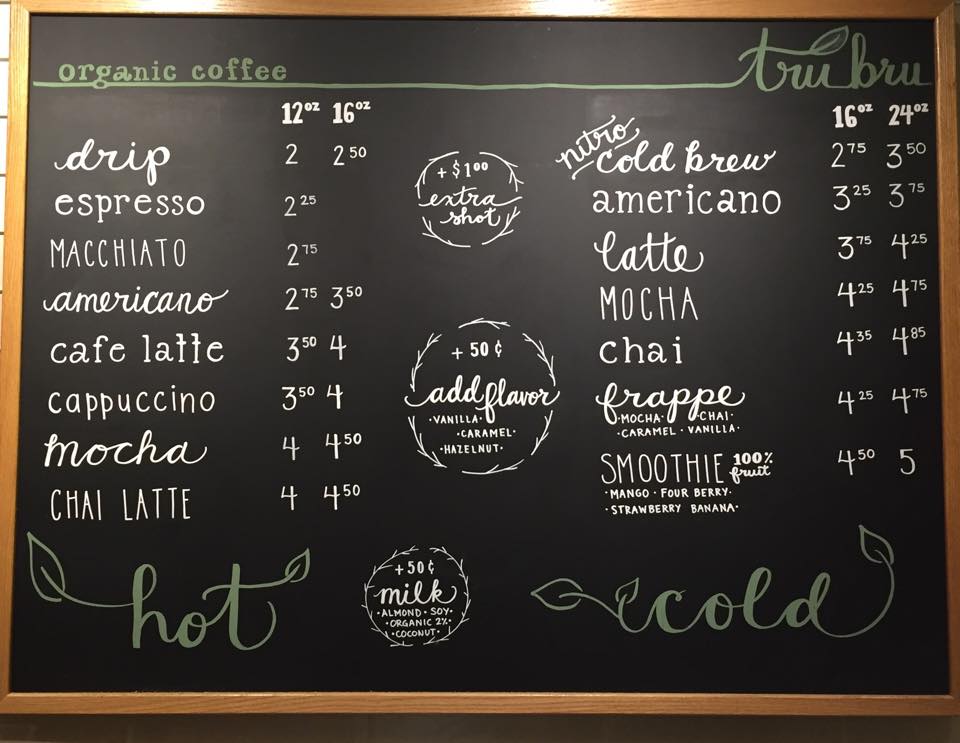 organic coffee
tru bru
12oz 16oz
drip 2 2 50
espresso 2 25
MACCHIATO 2 75
americano 2 75 3 50
cafe latte 3 50 4
cappuccino 3 50 4
mocha 4 4 50
CHAI LATTE 4 4 50
hot
+ $1 00
extra
shot
+ 50 ¢
add flavor
·VANILLA·
·CARAMEL·
·HAZELNUT·
+50¢
milk
·ALMOND·SOY·
·ORGANIC 2%·
·COCONUT·
16oz 24oz
nitro
cold brew 2 75 3 50
americano 3 25 3 75
latte 3 75 4 25
MOCHA 4 25 4 75
chai 4 35 4 85
frappe 4 25 4 75
·MOCHA·CHAI·
·CARAMEL·VANILLA·
SMOOTHIE 100% fruit 4 50 5
·MANGO·FOUR BERRY·
·STRAWBERRY BANANA·
cold